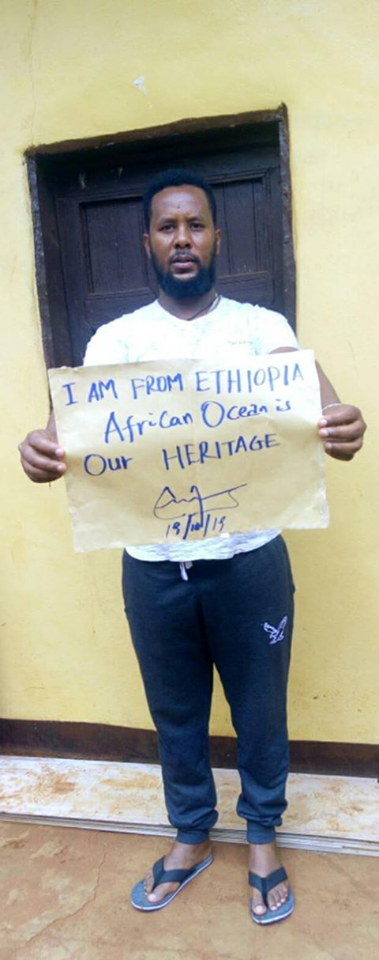 I AM FROM ETHIOPIA
African Ocean is
Our HERITAGE
19/10/19